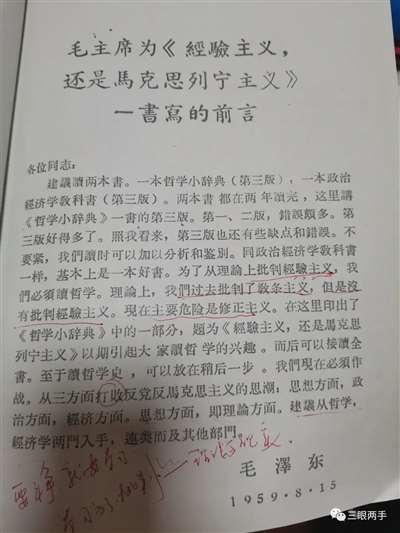 毛主席为《經驗主义,
还是馬克思列宁主义》
一書寫的前言
各位同志:
建議讀两本書。一本哲学小辞典(第三版),一本政治
經济学敎科書(第三版)。两本書都在两年讀完,这里講
《哲学小辞典》一書的第三版。第一、二版,錯誤頗多。第
三版好得多了。照我看来,第三版也还有些缺点和錯誤。不
要紧,我們讀时可以加以分析和鉴別。同政治經济学敎科書
一样,基本上是一本好書。为了从理論上批判經驗主义,我
們必須讀哲学。理論上,我們过去批判了敎条主义,但是沒
有批判經驗主义。現在主要危險是修正主义。在这里印出了
《哲学小辞典》中的一部分,題为《經驗主义,还是馬克思
列宁主义》以期引起大家讀哲学的兴趣。而后可以接讀全
書。至于讀哲学史,可以放在稍后一步。我們現在必須作
战。从三方面打敗反党反馬克思主义的思潮,思想方面,政
治方面,經济方面。思想方面,即理論方面。建議从哲学,
經济学两門入手,連类而及其他部門。
毛澤东
1959·8·15
三眼两手